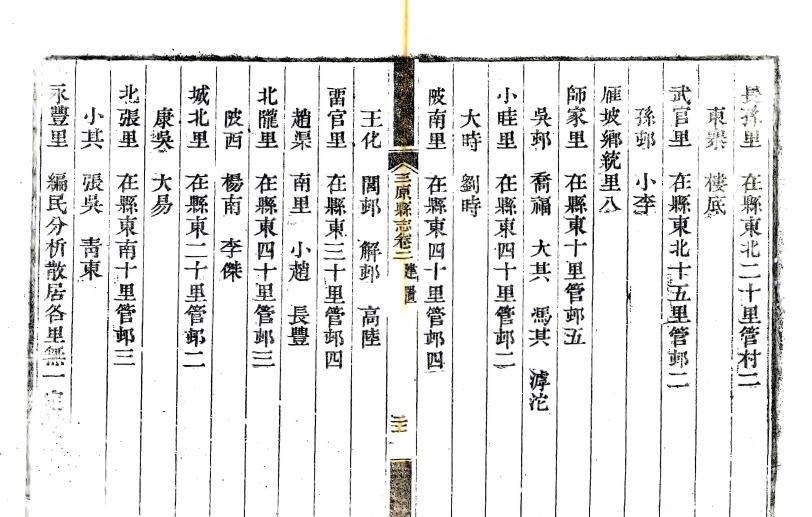 長孫里 在縣東北二十里管村二
東寨 樓底
武官里 在縣東北十五里管邨二
孫邨 小李
雁坡鄉統里八
師家里 在縣東十里管邨五
吳邨 喬福 大其 馮其 滹沱
小眭里 在縣東四十里管邨二
大時 劉時
陂南里 在縣東四十里管邨四
三原縣志卷二 建置
王化 閻邨 解邨 高陸
畱官里 在縣東三十里管邨四
趙渠 南里 小趙 長豐
北隴里 在縣東四十里管邨三
陂西 楊南 李傑
城北里 在縣東二十里管邨二
康吳 大易
北張里 在縣東南十里管邨三
小其 張吳 靑東
永豐里 編民分析散居各里無一定